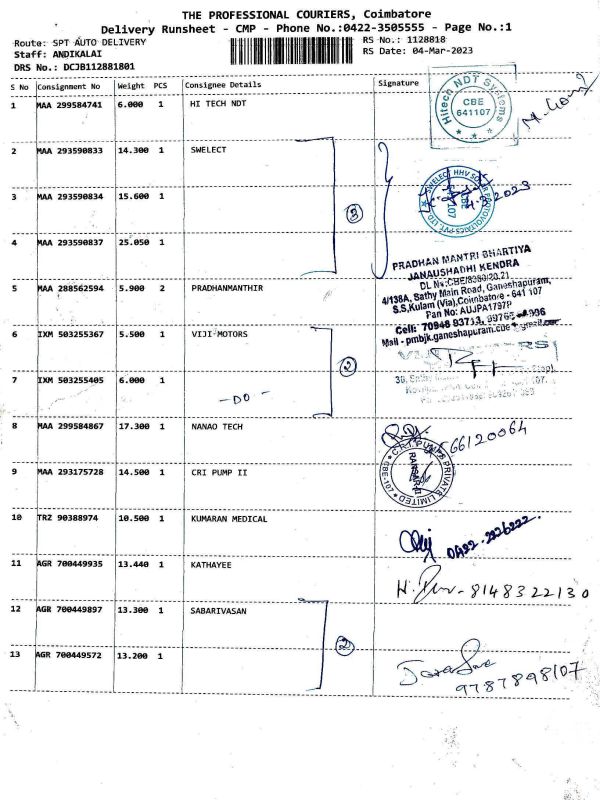 THE PROFESSIONAL COURIERS, Coimbatore
Delivery Runsheet - CMP - Phone No.:0422-3505555 - Page No.:1
Route: SPT AUTO DELIVERY
Staff: ANDIKALAI
DRS No.: DCJB112881801
RS No.: 1128818
RS Date: 04-Mar-2023
S No Consignment No Weight PCS Consignee Details Signature
1 MAA 299584741 6.000 1 HI TECH NDT
Hitech NDT Systems
CBE
641107
2 MAA 293590833 14.300 1 SWELECT
3 MAA 293590834 15.600 1
3
4 MAA 293590837 25.050 1
PRADHAN MANTRI BHARTIYA
JANAUSHADHI KENDRA
5 MAA 288562594 5.900 2 PRADHANMANTHIR
4/138A, Sathy Main Road, Ganeshapuram,
S.S.Kulam (Via),Coimbatore - 641 107
Pan No: AUJPA1797P
6 IXM 503255367 5.500 1 VIJI MOTORS
2
7 IXM 503255405 6.000 1
-DO-
8 MAA 299584867 17.300 1 NANAO TECH
66120064
9 MAA 293175728 14.500 1 CRI PUMP II
C.R.I. PUMPS PRIVATE LIMITED
10 TRZ 90388974 10.500 1 KUMARAN MEDICAL
11 AGR 700449935 13.440 1 KATHAYEE
8148322130
12 AGR 700449897 13.300 1 SABARIVASAN
2
13 AGR 700449572 13.200 1
9787898107